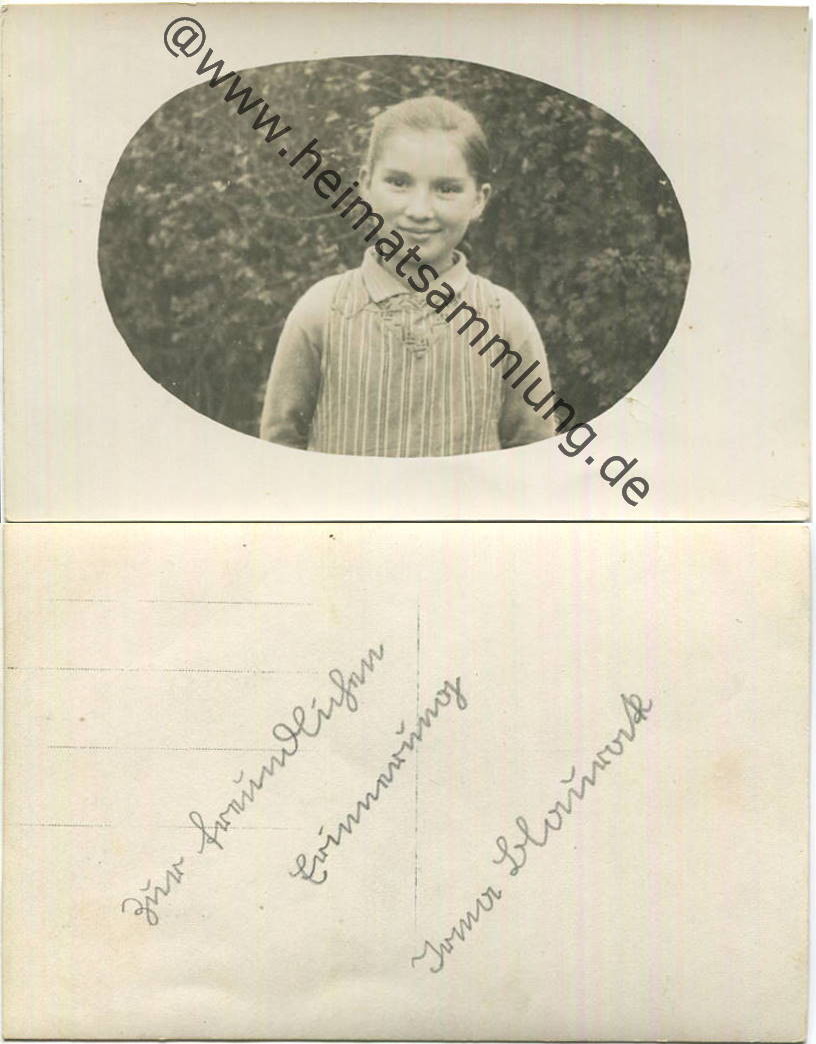 @www.heimatsammlung.de
Zur freundlichen
Erinnerung
Irma Blaurock